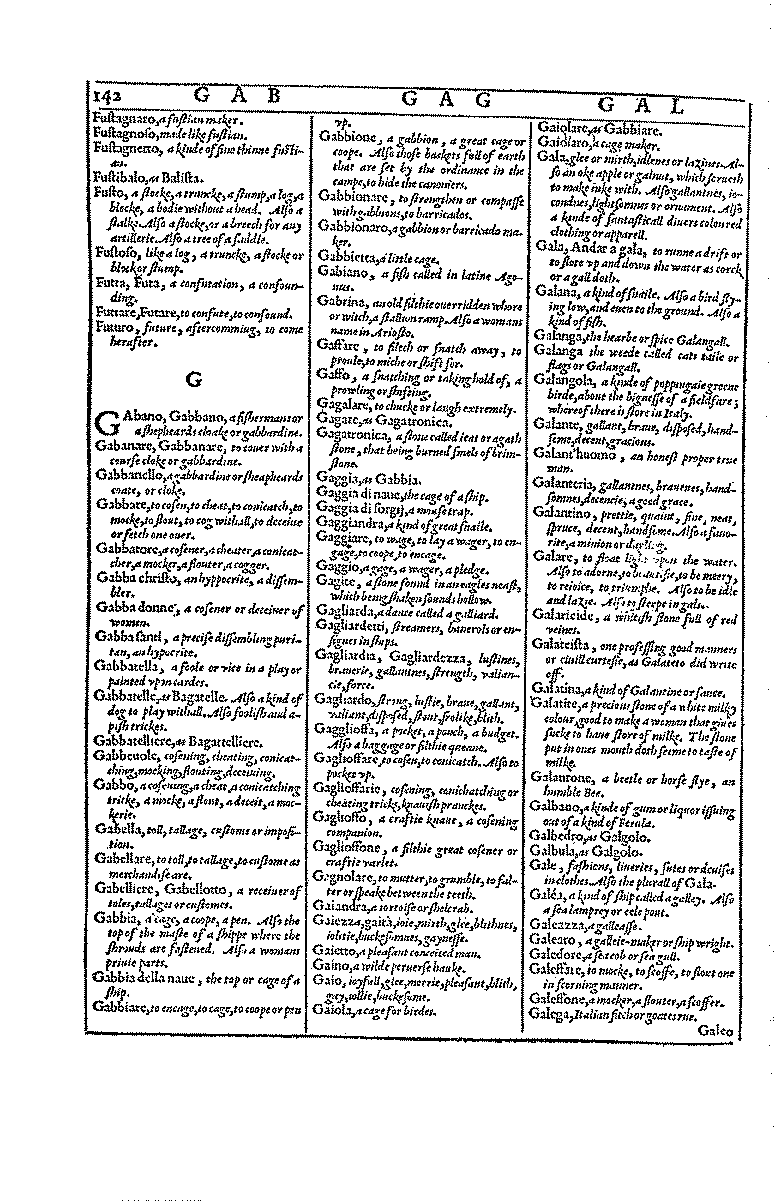 142 G A B G A G G A L
Fustagnaro, a fustian maker.
Fustagnoso, made like fustian.
Fustagnetto, a kinde of fine thinne fusti-
an.
Fustibalo, as Balista.
Fusto, a stocke, a truncke, a stump, a log, a
blocke, a bodie without a head. Also a
stalke. Also a stocke, or a breech for any
artillerie. Also a tree of a saddle.
Fustoso, like a log, a truncke, a stocke or
block or stump.
Futta, Futa, a confutation, a confoun-
ding.
Futtare, Futare, to confute, to confound.
Futuro, future, aftercomming, to come
herafter.
G
GAbano, Gabbano, a fishermans or
a shepheards cloake or gabbardine.
Gabanare, Gabbanare, to couer with a
course cloke or gabbardine.
Gabbanello, a gabbardine or sheapheards
coate, or cloke.
Gabbare, to cosen, to cheat, to conicatch, to
mocke, to flout, to cog withall, to deceiue
or fetch one ouer.
Gabbatore, a cosener, a cheater, a conicat-
cher, a mocker, a flouter, a cogger.
Gabba christo, an hyppocrite, a dissem-
bler.
Gabba donne, a cosener or deceiuer of
women.
Gabba santi, a precise dissembling puri-
tan, an hypocrite.
Gabbatella, a foole or vice in a play or
painted vpon cardes.
Gabbatelle, as Bagatelle. Also a kind of
dog to play withall. Also foolish and a-
pish trickes.
Gabbatelliere, as Bagattelliere.
Gabbeuole, cosening, cheating, conicat-
ching, mocking, flouting, deceiuing.
Gabbo, a cosening, a cheat, a conicatching
tricke, a mocke, a flout, a deceit, a moc-
kerie.
Gabella, toll, tallage, customs or imposi-
tion.
Gabellare, to toll, to tallage, to custome as
merchandise are.
Gabelliere, Gabellotto, a receiuer of
toles, tallages or customes.
Gabbia, a cage, a coope, a pen. Also the
top of the maste of a shippe where the
shrouds are fastened. Also a womans
priuie parts.
Gabbia della naue, the top or cage of a
ship.
Gabbiare, to encage, to cage, to coope or pen
vp.
Gabbione, a gabbion, a great cage or
coope. Also those baskets full of earth
that are set by the ordinance in the
campe, to hide the canoniers.
Gabbionare, to strengthen or compasse
with gabbions, to barricados.
Gabbionaro, a gabbion or barricado ma-
ker.
Gabbietta, a little cage.
Gabiano, a fish called in latine Ago-
nus.
Gabrina, an old filthie ouerridden whore
or witch, a stallion ramp. Also a womans
name in Ariosto.
Gaffare, to filech or snatch away, to
proule, to miche or shift for.
Gaffo, a snatching or taking hold of, a
prowling or shifting.
Gagalare, to chucke or laugh extremely.
Gagate, as Gagatronica.
Gagatronica, a stone called ieat or agath
stone, that being burned smels of brim-
stone.
Gaggia, as Gabbia.
Gaggia di naue, the cage of a ship.
Gaggia di forgij, a mouse trap.
Gaggiandra, a kind of great snaile.
Gaggiare, to wage, to lay a wager, to en-
gage, to coope, to encage.
Gaggio, a gage, a wager, a pledge.
Gagite, a stone found in an eagles neast,
which being shaken sounds hollow.
Gagliarda, a dance called a galliard.
Gagliardetti, streamers, banerols or en-
signes in ships.
Gagliardia, Gagliardezza, lustines,
brauerie, gallantnes, strength, valian-
cie, force.
Gagliardo, strong, lustie, braue, gallant,
valiant, disposed, stout, frolike, blith.
Gaglioffa, a pocket, a pouch, a budget.
Also a baggage or filthie queane.
Gaglioffare, to cosen, to conicatch. Also to
pocket vp.
Gaglioffarie, cosening, conichatching or
cheating tricke, knauish pranckes.
Gaglioffo, a craftie knaue, a cosening
companion.
Gaglioffone, a filthie great cosener or
craftie varlet.
Gagnolare, to mutter, to grumble, to fal-
ter or speake between the teeth.
Gaiandra, a tortoise or shelcrab.
Gaiezza, gaità, ioie, mirth, glee, blithnes,
iolitie, buckesomnes, gaynesse.
Gaietto, a pleasant conceited man.
Gaino, a wilde peruerse hauke.
Gaio, ioyfull, glee, merrie, pleasant, blith,
gay, iollie, buckesome.
Gaiola, a cage for birdes.
Gaiolare, as Gabbiare.
Gaiolaro, a cage maker.
Gala, glee or mirth, idlenes or lazines. Al-
so an oke apple or galnut, which serueth
to make inke with. Also gallantnes, io-
condnes, lightsomnes or ornament. Also
a kinde of fantasticall diuers coloured
clothing or apparell.
Gala, Andar a gala, to runne a drift or
to flote vp and downe the water as corck
or a gall doth.
Galana, a kind of snaile. Also a bird fly-
ing low, and euen to the ground. Also a
kind of fish.
Galanga, the hearbe or spice Galangall.
Galanga the weede called cats taile or
flags or Galangall.
Galangola, a kinde of poppingaie greene
birde, about the bignesse of a fieldfare;
whereof there is store in Italy.
Galante, gallant, braue, disposed, hand-
some, decent, gracious.
Galant'huomo, an honest proper true
man.
Galanteria, gallantnes, brauenes, hand-
somnes, decencie, a good grace.
Galantino, prettie, quaint, fine, neat,
spruce, decent, handsome. Also a fauo-
rite, a minion or darling.
Galare, to float light vpon the water.
Also to adorne, to beautifie, to be mery,
to reioice, to triumphe. Also to be idle
and lazie. Also to steepe in gals.
Galaricide, a whitish stone full of red
veines.
Galateista, one professing good manners
or ciuill curtesie, as Galateo did write
off.
Galatina, a kind of Galantine or sauce.
Galatite, a precious stone of a white milky
colour, good to make a woman that giues
sucke to haue store of milke. The stone
put in ones mouth doth seeme to taste of
milke.
Galaurone, a beetle or horse flye, an
humble Bee.
Galbano, a kinde of gum or liquor issuing
out of a kind of Ferula.
Galbedro, as Galgolo.
Galbula, as Galgolo.
Gale, fashions, liueries, sutes or deuises
in clothes. Also the plurall of Gala.
Galea, a kind of ship called a galley. Also
a sea lamprey or eele pout.
Galeazza, a galleasse.
Galearo, a galleie-maker or ship wright.
Galedore, a sea cob or sea gull.
Galeffare, to mocke, to scoffe, to flout one
in scorning manner.
Galeffone, a mocker, a flouter, a scoffer.
Galega, Italian fitch or goates rue.
Galeo